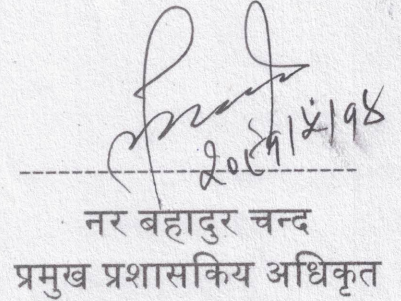 २०८१/५/१४
नर बहादुर चन्द
प्रमुख प्रशासकिय अधिकृत